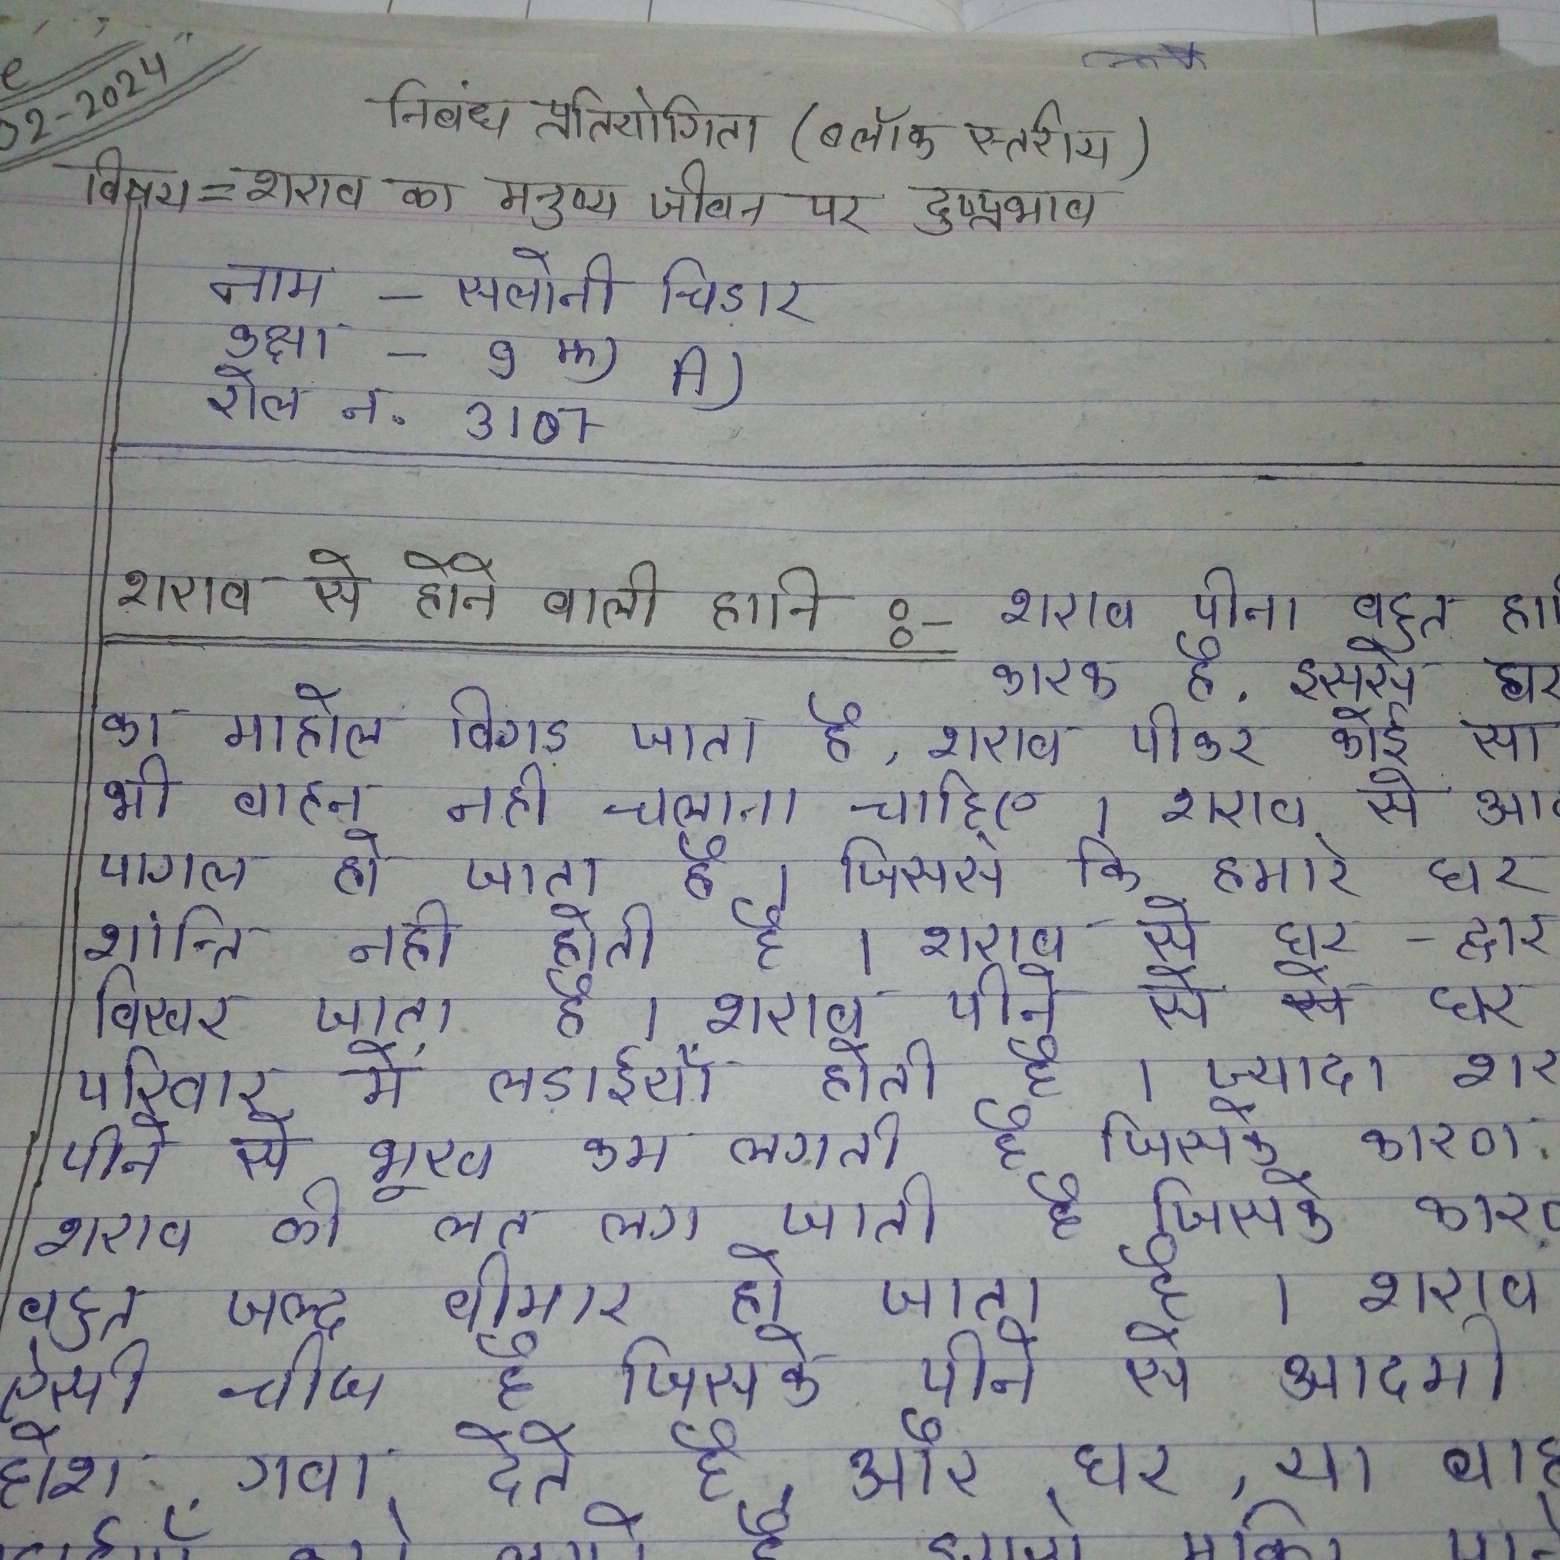 02-2024
निबंध प्रतियोगिता (ब्लॉक स्तरीय)
विषय = शराव का मनुष्य जीवन पर दुष्प्रभाव
नाम - सलोनी चिडार
कक्षा - 9 A)
रोल न. 3107
शराव से होने वाली हानि :- शराव पीना वहुत
कारक है, इससे घर
का माहोल विगड जाता है, शराव पीकर कोई सा
भी वाहन नही चलाना चाहिए । शराव से
पागल हो जाता है । जिससे कि हमारे घर
शांन्ति नही होती है । शराव से घर - द्वार
विखर जाता है । शराव पीने से से घर
परिवार में लडाईयाँ होती है । ज्यादा
पीने से भूख कम लगती है जिसके कारण
शराव की लत लग जाती है जिसके
वहुत जल्द वीमार हो जाता है । शराव
ऐसी चीज है जिसके पीने से आदमी
होश गवा देते है, और घर, या